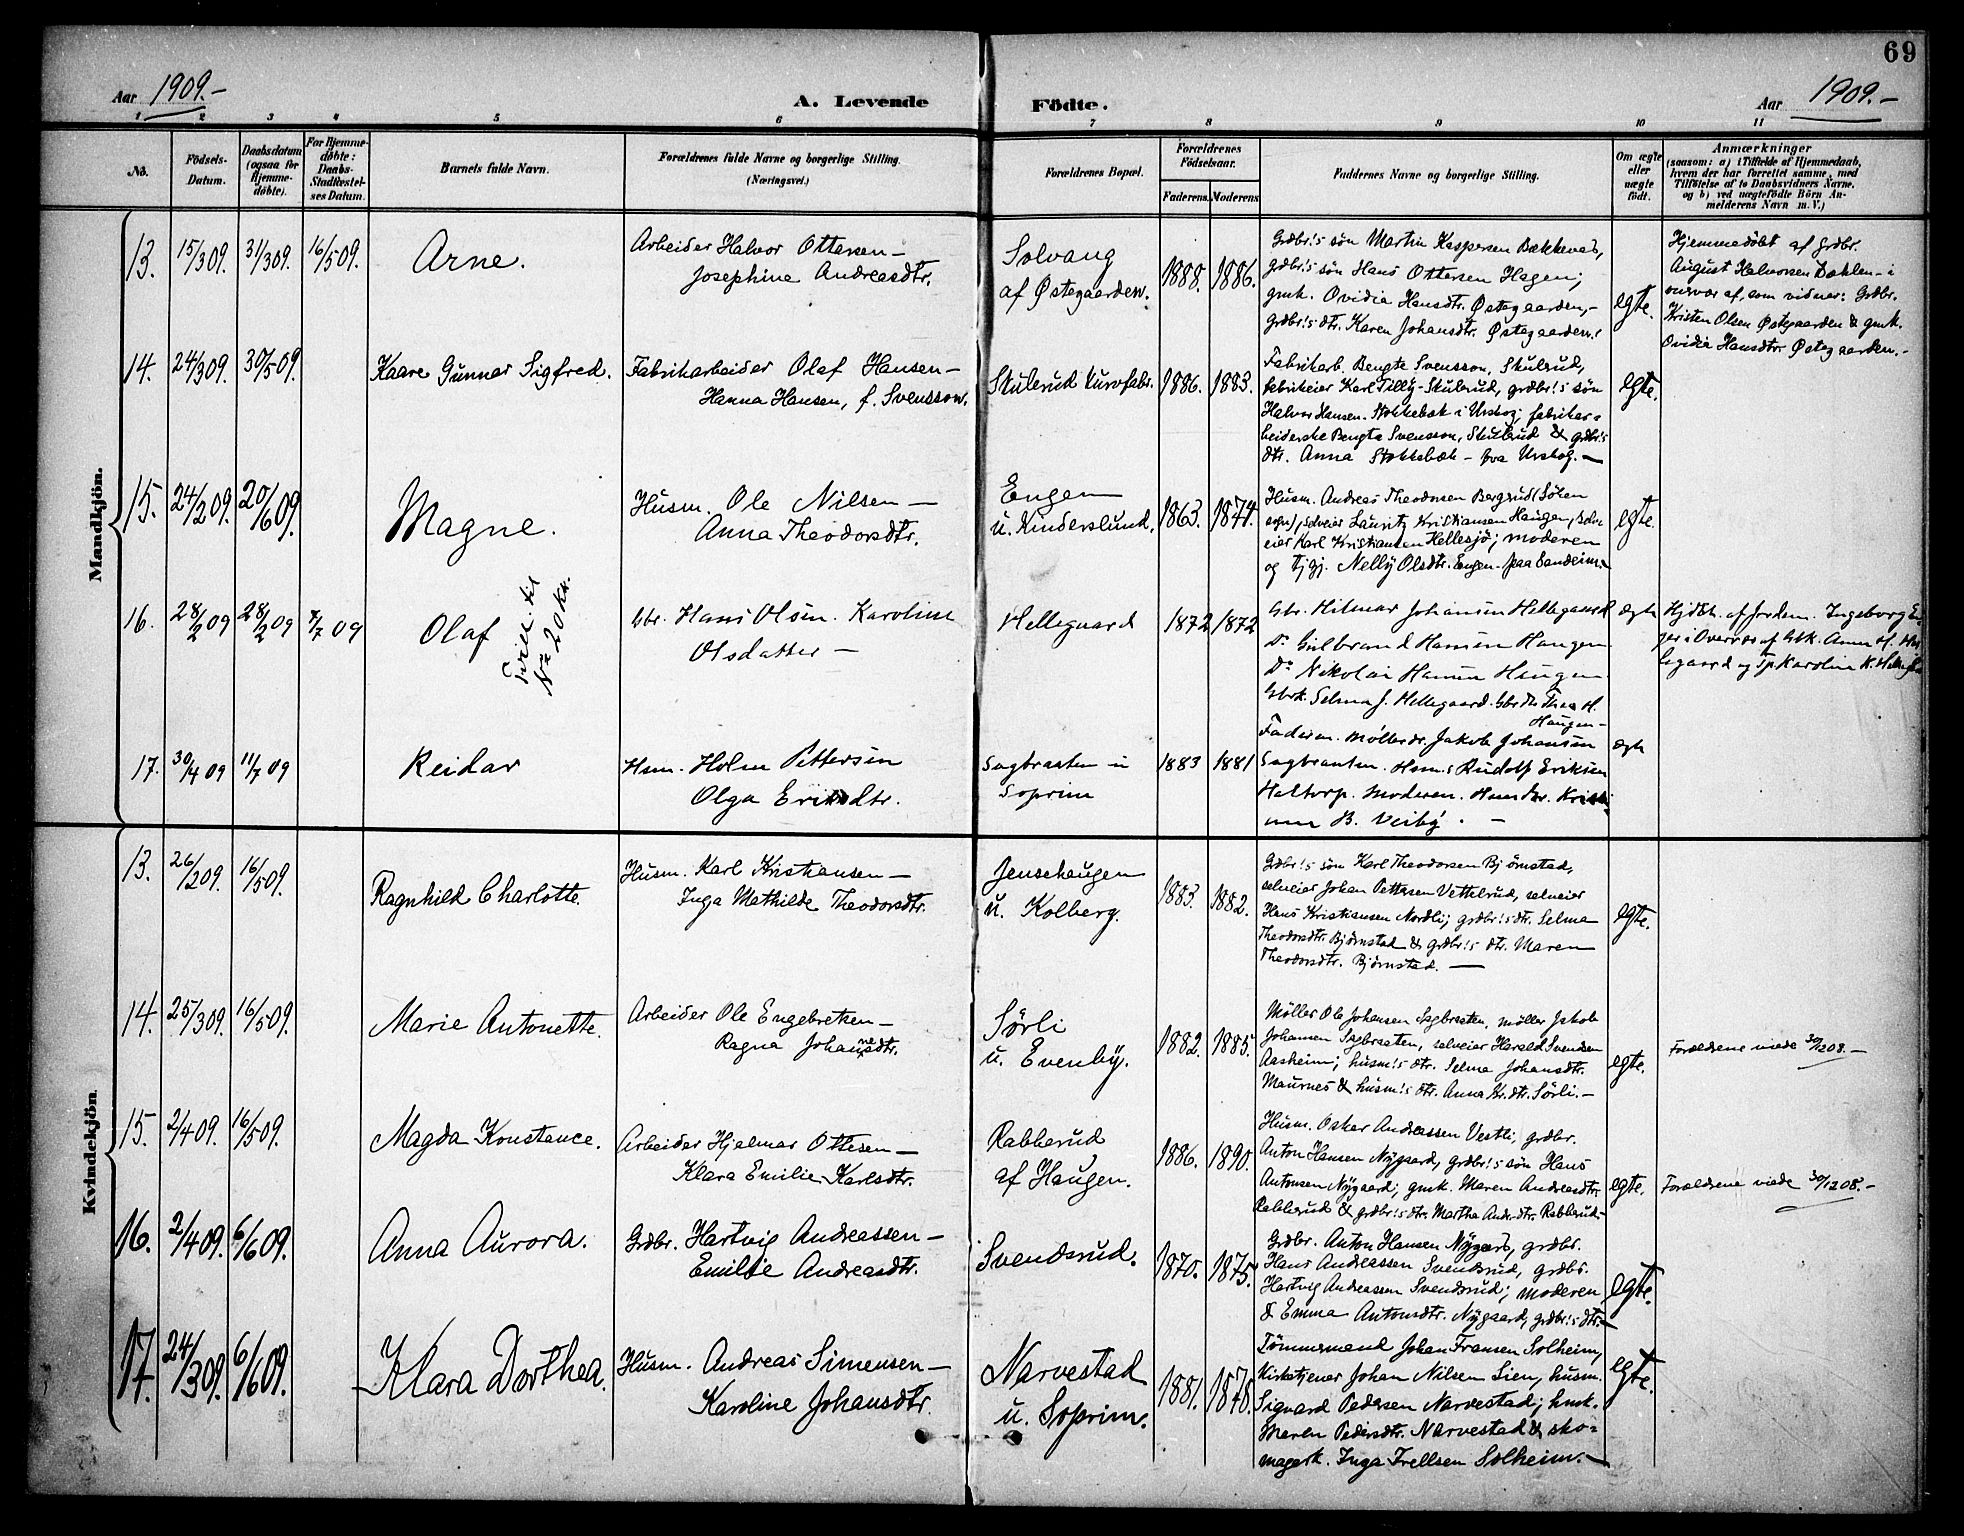 69
Aar 1909.-
A. Levende
Födte.
Aar 1909.-
1 2 3 4 5 6 7 8 9 10 11
No.
Födsels-Datum.
Daabsdatum (ogsaa for Hjemme-döbte).
For Hjemme-döbte: Daabs-Stadfæstel-ses Datum.
Barnets fulde Navn.
Forældrenes fulde Navne og borgerlige Stilling. (Næringsvei.)
Forældrenes Bopæl.
Forældrenes Födselsaar.
Faderens. Moderens.
Faddernes Navne og borgerlige Stilling.
Om ægte eller uægte födt.
Anmærkninger
(saasom: a) i Tilfælde af Hjemmedaab, hvem der har forrettet samme, med Tilföielse af to Daabsvidners Navne, og b) ved uægtefödte Börn An-melderens Navn m. V.)
Mandkjön.
13. 15/3 09. 31/3 09. 16/5 09. Arne.
Arbeider Halvor Ottersen-
Josephine Andreasdtr.
Solvang
af Østegaarden.
1888. 1886.
Grdbr!s søn Martin Kaspersen Bækkevar,
grdbr!s søn Hans Ottersen Hagen;
gmk. Ovidia Hansdtr. Østegaarden,-
Grdbr!s dtr. Karen Johansdtr. Østegaarden.
egte.
Hjemmedøbt af Grdbr.
August Halvorsen
som vidner: Grdbr.
Kristen Olsen Østegaarden & gmk.
Ovidia Hansdtr. Østegaarden.-
14. 24/3 09. 30/5 09. Kaare Gunnar Sigfred.
Fabrikarbeider Olaf Hansen-
Hanna Hansen, f. Svensson.
Skulerud 1886. 1883.
Fabrikarb. Bengte Svensson, Skulrud,
fabrikeier Karl Tilly-Skulrud, grdbr!s søn
Halvor Hansen Stokkebæk i Urskog; fabrikar-
beiderske Bengta Svensson, Skulrud & grdbr!s
dtr. Anna Stokkebæk - fra Urskog.-
egte.
15. 24/2 09. 20/6 09. Magne.
Husm. Ole Nilsen-
Anna Theodorsdtr.
Engen
u. Kinderslund.
1863. 1874.
Husm. Andreas Theodorsen Bergsrud (Søten
sogn), selveier Lauritz Kristiansen Haugen, selv-
eier Karl Kristiansen Hellesjø; moderen
og tjgj. Nelly Olsdtr. Engen
egte.
16. 28/2 09 28/2 09 4/7 09 Olaf
Tvill. til
No 20 Kv.
Gbr. Hans Olsen. Karoline
Olsdatter -
Hellegaard 1872 1872
Gbr. Hilmar Johansen Hellegaard
Do Gulbrand Hansen Haugen
Do Nikolai Hansen Haugen
Gbrk. Selma J. Hellegaard. Gbr dtr Thea H.
Haugen-
ægte
Hjdbt. af Jordem. Ingeborg
i Overvær af Gbk. Anne H.
og Tp Karoline K.
17. 30/4 09 11/7 09 Reidar
Hsm. Holm Pettersen
Olga Eriksdtr.
Sagbraaten u
Soprim
1883 1881
Faderen. Mølledr. Jakob Johansen
Sagbraaten. Hsm.s Rudolf Eriksen
Haltorp. Moderen.
B. Veiby. -
ægte
Kvindekjön.
13. 26/2 09. 16/5 09. Ragnhild Charlotte.
Husm. Karl Kristiansen-
Inga Mathilde Theodorsdtr.
Jensehaugen
u. Kolberg.
1883. 1882.
Grdbr!s søn Karl Theodorsen Bjørnstad,
selveier Johan Pettersen Vettelrud, selveier
Hans Kristiansen Nordli; grdbr!s dtr. Selma
Theodorsdtr. Bjørnstad & grdbr!s dtr. Maren
Theodorsdtr. Bjørnstad. -
egte.
14. 25/3 09. 16/5 09. Marie Antonette.
Arbeider Ole Engebretsen-
Ragna Johannesdtr.
Sørli
u. Evenby.
1882. 1885.
Møller Ole Johansen Sagbraaten, møller Jakob
Johansen Sagbraaten, selveier Harald Svendsen
Aasheim; husm!s dtr. Selma Johansdtr.
Maurnes & husm!s dtr. Anna Kr.dtr. Sørli.-
egte.
Forældrene viede 30/12 08.-
15. 2/4 09. 16/5 09. Magda Konstance.
Arbeider Hjalmar Ottesen-
Klara Emilie Karlsdtr.
Rabberud
af Haugen.
1886. 1890.
Husm. Oskar Andreassen Vestli, grdbr.
Anton Hansen Nygaard, grdbr!s søn Hans
Antonsen Nygaard; gmk. Maren Andreasdtr.
Rabberud & grdbr!s dtr. Martha Andr.dtr. Rabberud.-
egte.
Forældrene viede 30/12 08.-
16. 2/4 09. 6/6 09. Anna Aurora.
Grdbr. Hartvig Andreassen-
Emilie Andreasdtr.
Svendsrud.
1870. 1875.
Grdbr. Anton Hansen Nygard, grdbr.
Hans Andreassen Svendsrud, grdbr.
Hartvig Andreassen Svendsrud; moderen
& Emma Antonsdtr. Nygaard, grdbr!s dtr.-
egte.
17. 24/3 09. 6/6 09. Klara Dorthea.
Husm. Andreas Simensen-
Karoline Johansdtr.
Narvestad
u. Soprim.
1881. 1878.
Tømmermand Johan Fransen Solheim,
Kirketjener Johan Nilsen Lien, husm.
Sigvard Pedersen Narvestad; hmk.
Maren Pedersdtr. Narvestad & sko-
magerk. Inga Frellsen Solheim.-
egte.